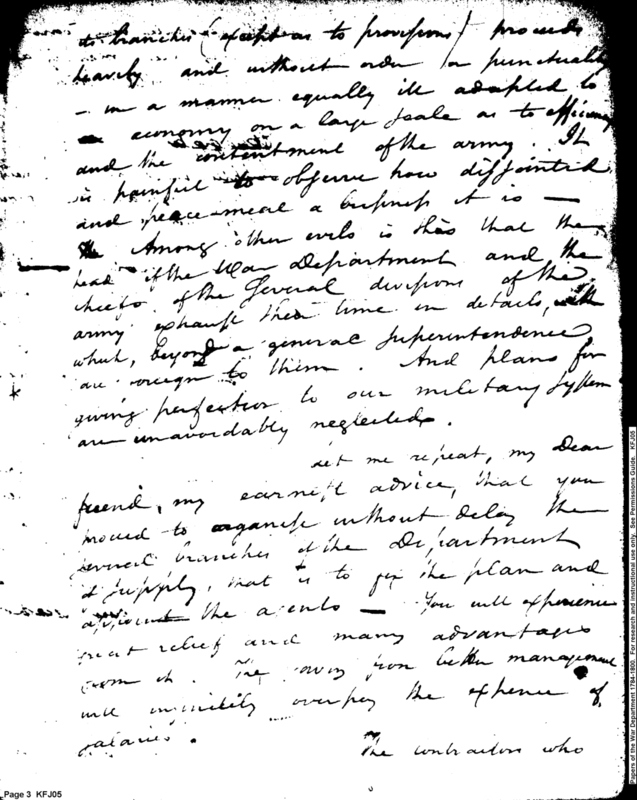 its branches (except as to provisions) proceeds
heavily and without order or punctuality
— in a manner equally ill adapted to
economy on a large scale as to efficiency
and the contentment of the army. It
is painful to observe how disjointed
and peace-meal a business it is —
Among other evils is this that the
head of the War Department and the
chiefs of the several divisions of the
army exhaust their time in details, with
which, beyond a general superintendence,
are foreign to them. And plans for
giving perfection to our military system
are unavoidably neglected.
Let me repeat, my Dear
friend, my earnest advice, that you
proceed to organise without delay the
several branches of the Department
of supply, that is to fix the plan and
appoint the agents — You will experience
great relief and many advantages
from it. The saving from better management
will infinitely overpay the expence of
salaries.
The contractors who
Page 3 KFJ05
Papers of the War Department 1784-1800. For research and instructional use only. See Permissions Guide. KFJ05